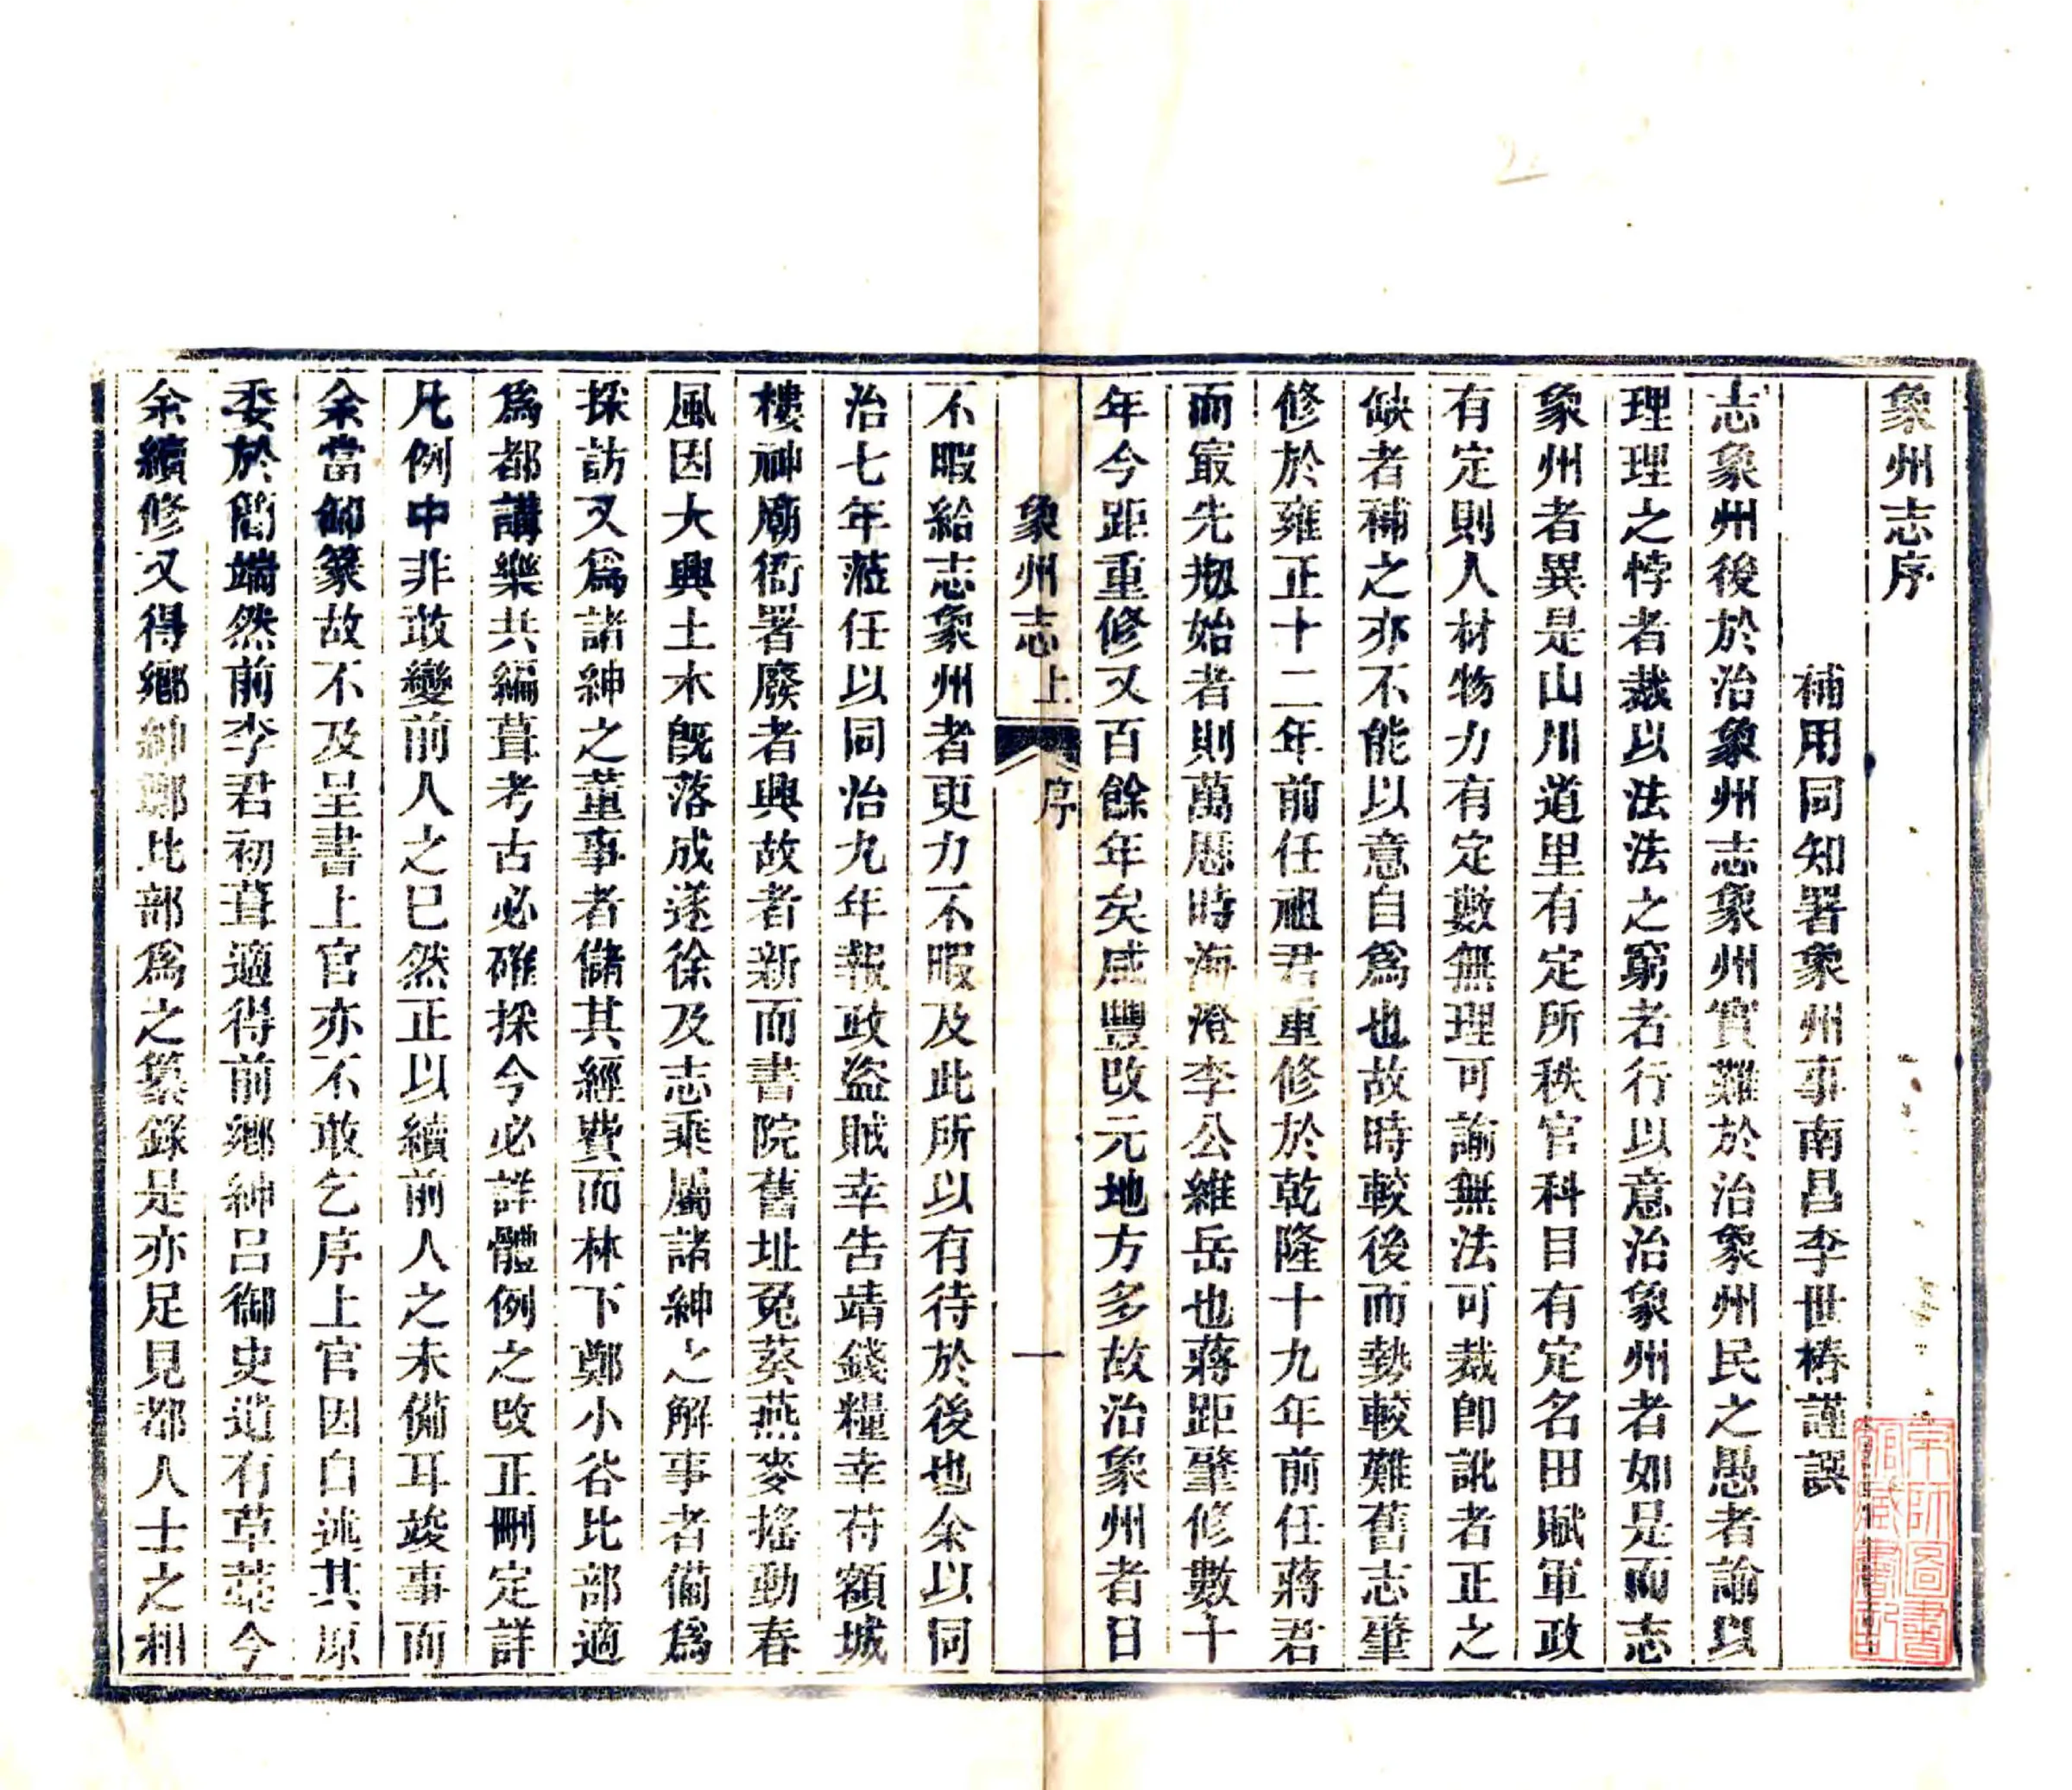 象州志序
補用同知署象州事南昌李世椿謹譔
志象州後於治象州志象州實難於治象州民之愚者諭以
理理之悖者裁以法法之窮者行以意治象州者如是而志
象州者異是山川道里有定所秩官科目有定名田賦軍政
有定則人材物力有定數無理可諭無法可裁卽訛者正之
缺者補之亦不能以意自爲也故時較後而勢較難舊志肇
修於雍正十二年前任祖君重修於乾隆十九年前任蔣君
而㝡先刱始者則萬厯時海澄李公維岳也蔣距肇修數十
年今距重修又百餘年矣咸豐改元地方多故治象州者日
象州志上 序 一
不暇給志象州者更力不暇及此所以有待於後也余以同
治七年蒞任以同治九年報政盜賊幸告靖錢糧幸符額城
樓神廟衙署廢者興故者新而書院舊址兎葵燕麥搖動春
風因大興土木旣落成遂徐及志乘屬諸紳之解事者僃爲
採訪又爲諸紳之董事者儲其經費而林下鄭小谷比部適
爲都講樂共編葺考古必確採今必詳體例之改正刪定詳
凡例中非敢變前人之已然正以續前人之未備耳竣事而
余當卸篆故不及呈書上官亦不敢乞序上官因自述其原
委於簡端然前李君初葺適得前鄉紳呂御史遺有草藁今
余續修又得鄉紳鄭比部爲之纂錄是亦足見都人士之相